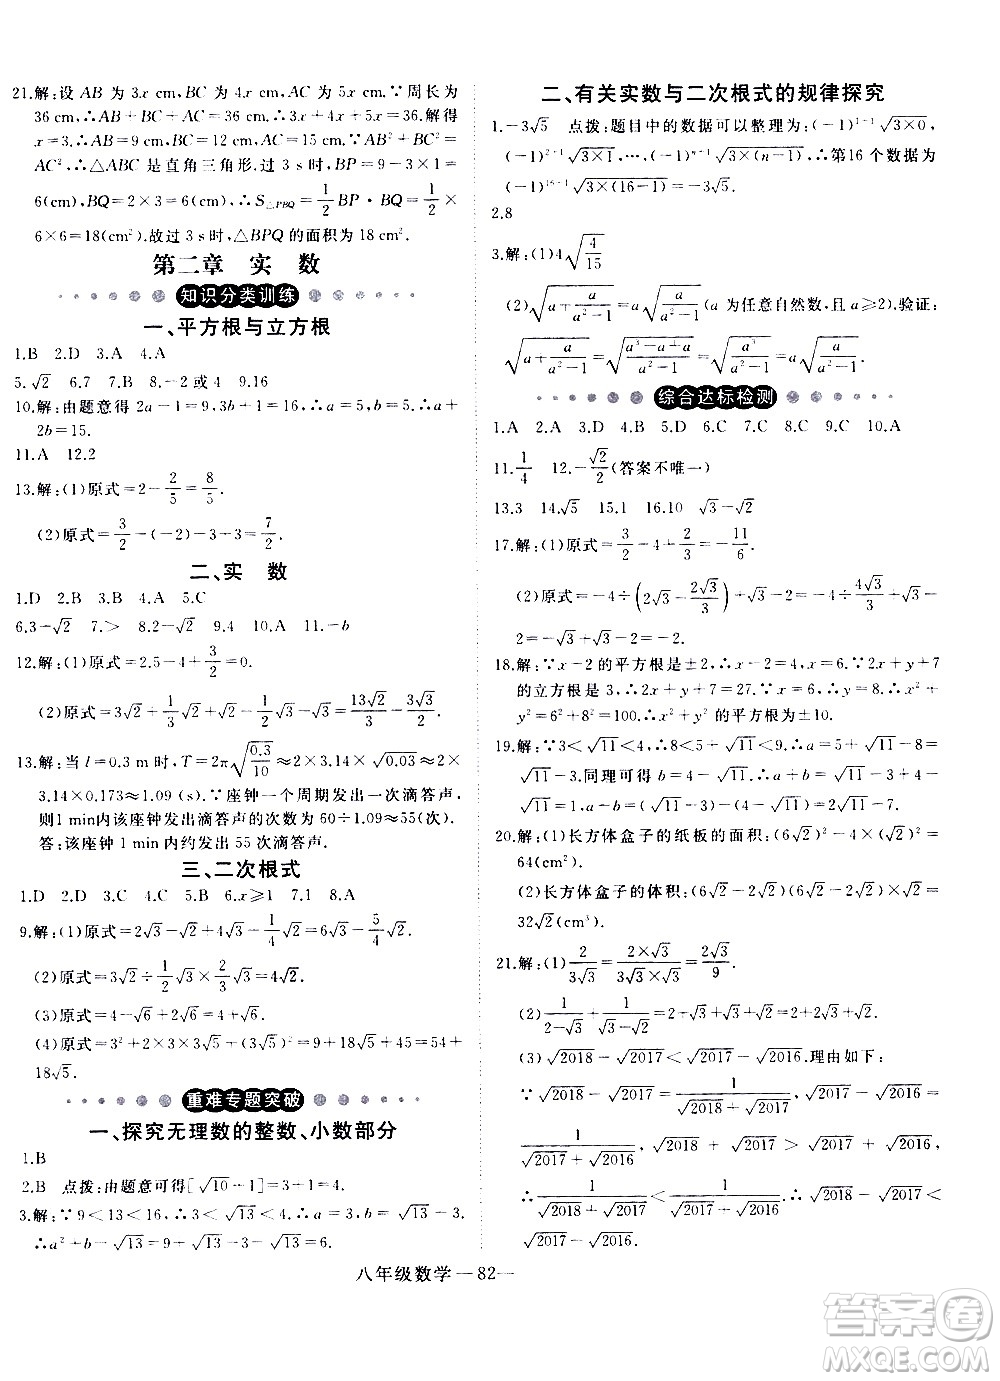 21.解:设 AB 为 3x cm,BC 为 4x cm,AC 为 5x cm.∵周长为
36 cm,AB+BC+AC=36 cm,∴3x+4x+5x=36.解得
x=3.∴AB=9 cm,BC=12 cm,AC=15 cm.∵AB²+BC²=
AC²,∴△ABC 是直角三角形.过 3 s 时,BP=9-3×1=
6(cm),BQ=2×3=6(cm),∴S△PBQ=1/2 BP·BQ=1/2×
6×6=18(cm²).故过 3 s 时,△BPQ 的面积为 18 cm².
第二章 实 数
知识分类训练
一、平方根与立方根
1.B 2.D 3.A 4.A
5.√2 6.7 7.B 8.-2 或 4 9.16
10.解:由题意得 2a-1=9,3b+1=16,∴a=5,b=5,∴a+
2b=15.
11.A 12.2
13.解:(1)原式=2-2/5=8/5.
(2)原式=3/2-(-2)-3-3=7/2.
二、实 数
1.D 2.B 3.B 4.A 5.C
6.3-√2 7.> 8.2-√2 9.4 10.A 11.-b
12.解:(1)原式=2.5-4+3/2=0.
(2)原式=3√2+1/3×√2-1/2×√2=13√2/3-3/2√2.
13.解:当 l=0.3 m 时,T=2π√(0.3/10)≈2×3.14×√0.03≈2×
3.14×0.173≈1.09 (s).∵座钟一个周期发出一次滴答声,
则1 min内该座钟发出滴答声的次数为 60÷1.09≈55(次).
答:该座钟 1 min 内约发出 55 次滴答声.
三、二次根式
1.D 2.D 3.C 4.C 5.B 6.x≥1 7.1 8.A
9.解:(1)原式=2√3-√3+1/4√3=√3+1/4√3=5/4√3.
(2)原式=3√2÷1/2√3×2/3√3=4√2.
(3)原式=4-√6+2√6=4+√6.
(4)原式=3²+2×3×3√5+(3√5)²=9+18√5+45=54+
18√5.
重难专题突破
一、探究无理数的整数、小数部分
1.B
2.B 点拨:由题意可得[√10+1]=3+1=4.
3.解:∵9<13<16,∴3<√13<4,∴a=3,b=√13-3.
∴a²+b-√13=9+√13-3-√13=6.
二、有关实数与二次根式的规律探究
1.-3√5 点拨:题目中的数据可以整理为:(-1)¹⁻¹√(3×0),
(-1)²⁻¹√(3×1),…,(-1)ⁿ⁻¹√(3×(n-1)),∴第16 个数据为
(-1)¹⁶⁻¹√(3×(16-1))=-3√5.
2.8
3.解:(1)4√(4/15)
(2)√(a+a/(a²-1))=a√(a/(a²-1))(a 为任意自然数,且 a≥2).验证:
√(a+a/(a²-1))=√((a³-a+a)/(a²-1))=√(a³/(a²-1))=a√(a/(a²-1)).
综合达标检测
1.A 2.A 3.D 4.D 5.D 6.C 7.C 8.C 9.C 10.A
11.1/4 12.-√2/2(答案不唯一)
13.3 14.√5 15.1 16.10 √3-√2
17.解:(1)原式=3/2-4+2/3=-11/6.
(2)原式=-4÷(2√3-2√3/3)×√3-2=-4÷4√3/3×√3-
2=-√3×√3-2=-3-2=-5.
18.解:∵x-2 的平方根是±2,∴x-2=4,∴x=6.∵2x+y+7
的立方根是 3,∴2x+y+7=27.∵x=6,∴y=8,∴x²+
y²=6²+8²=100.∴x²+y² 的平方根为±10.
19.解:∵3<√11<4,∴8<5+√11<9.∴a=5+√11-8=
√11-3.同理可得 b=4-√11.∴a+b=√11-3+4-
√11=1.
20.解:(1)长方体盒子的纸板的面积:(6√2)²-4×(√2)²=
64(cm²).
(2)长方体盒子的体积:(6√2-2√2)(6√2-2√2)×√2=
32√2(cm³).
21.解:(1)2/(3√3)=(2×√3)/(3√3×√3)=2√3/9.
(2)1/(√2+1)+1/(√3+√2)=√2-1+√3-√2=√3-1.
(3)√2018-√2017<√2017-√2016.理由如下:
∵√2018-√2017=1/(√2018+√2017),√2017-√2016=
1/(√2017+√2016),√2018+√2017>√2017+√2016,
∴1/(√2018+√2017)<1/(√2017+√2016).∴√2018-√2017
<√2017-√2016.
八年级数学—82—
答案卷
MXQE.COM